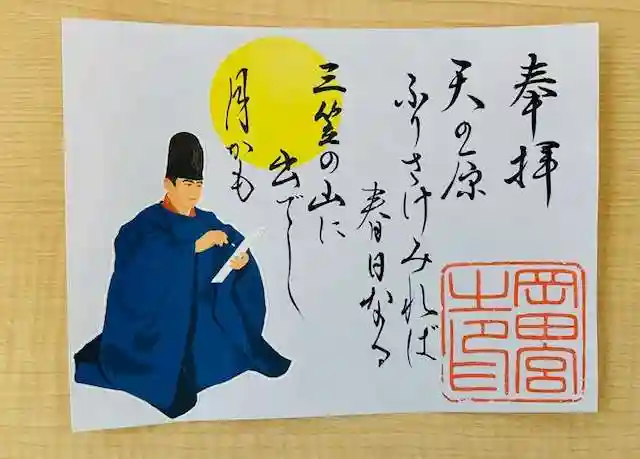 奉拝
天の原
ふりさけみれば
春日なる
三笠の山に
出でし
月かも
岡田宮